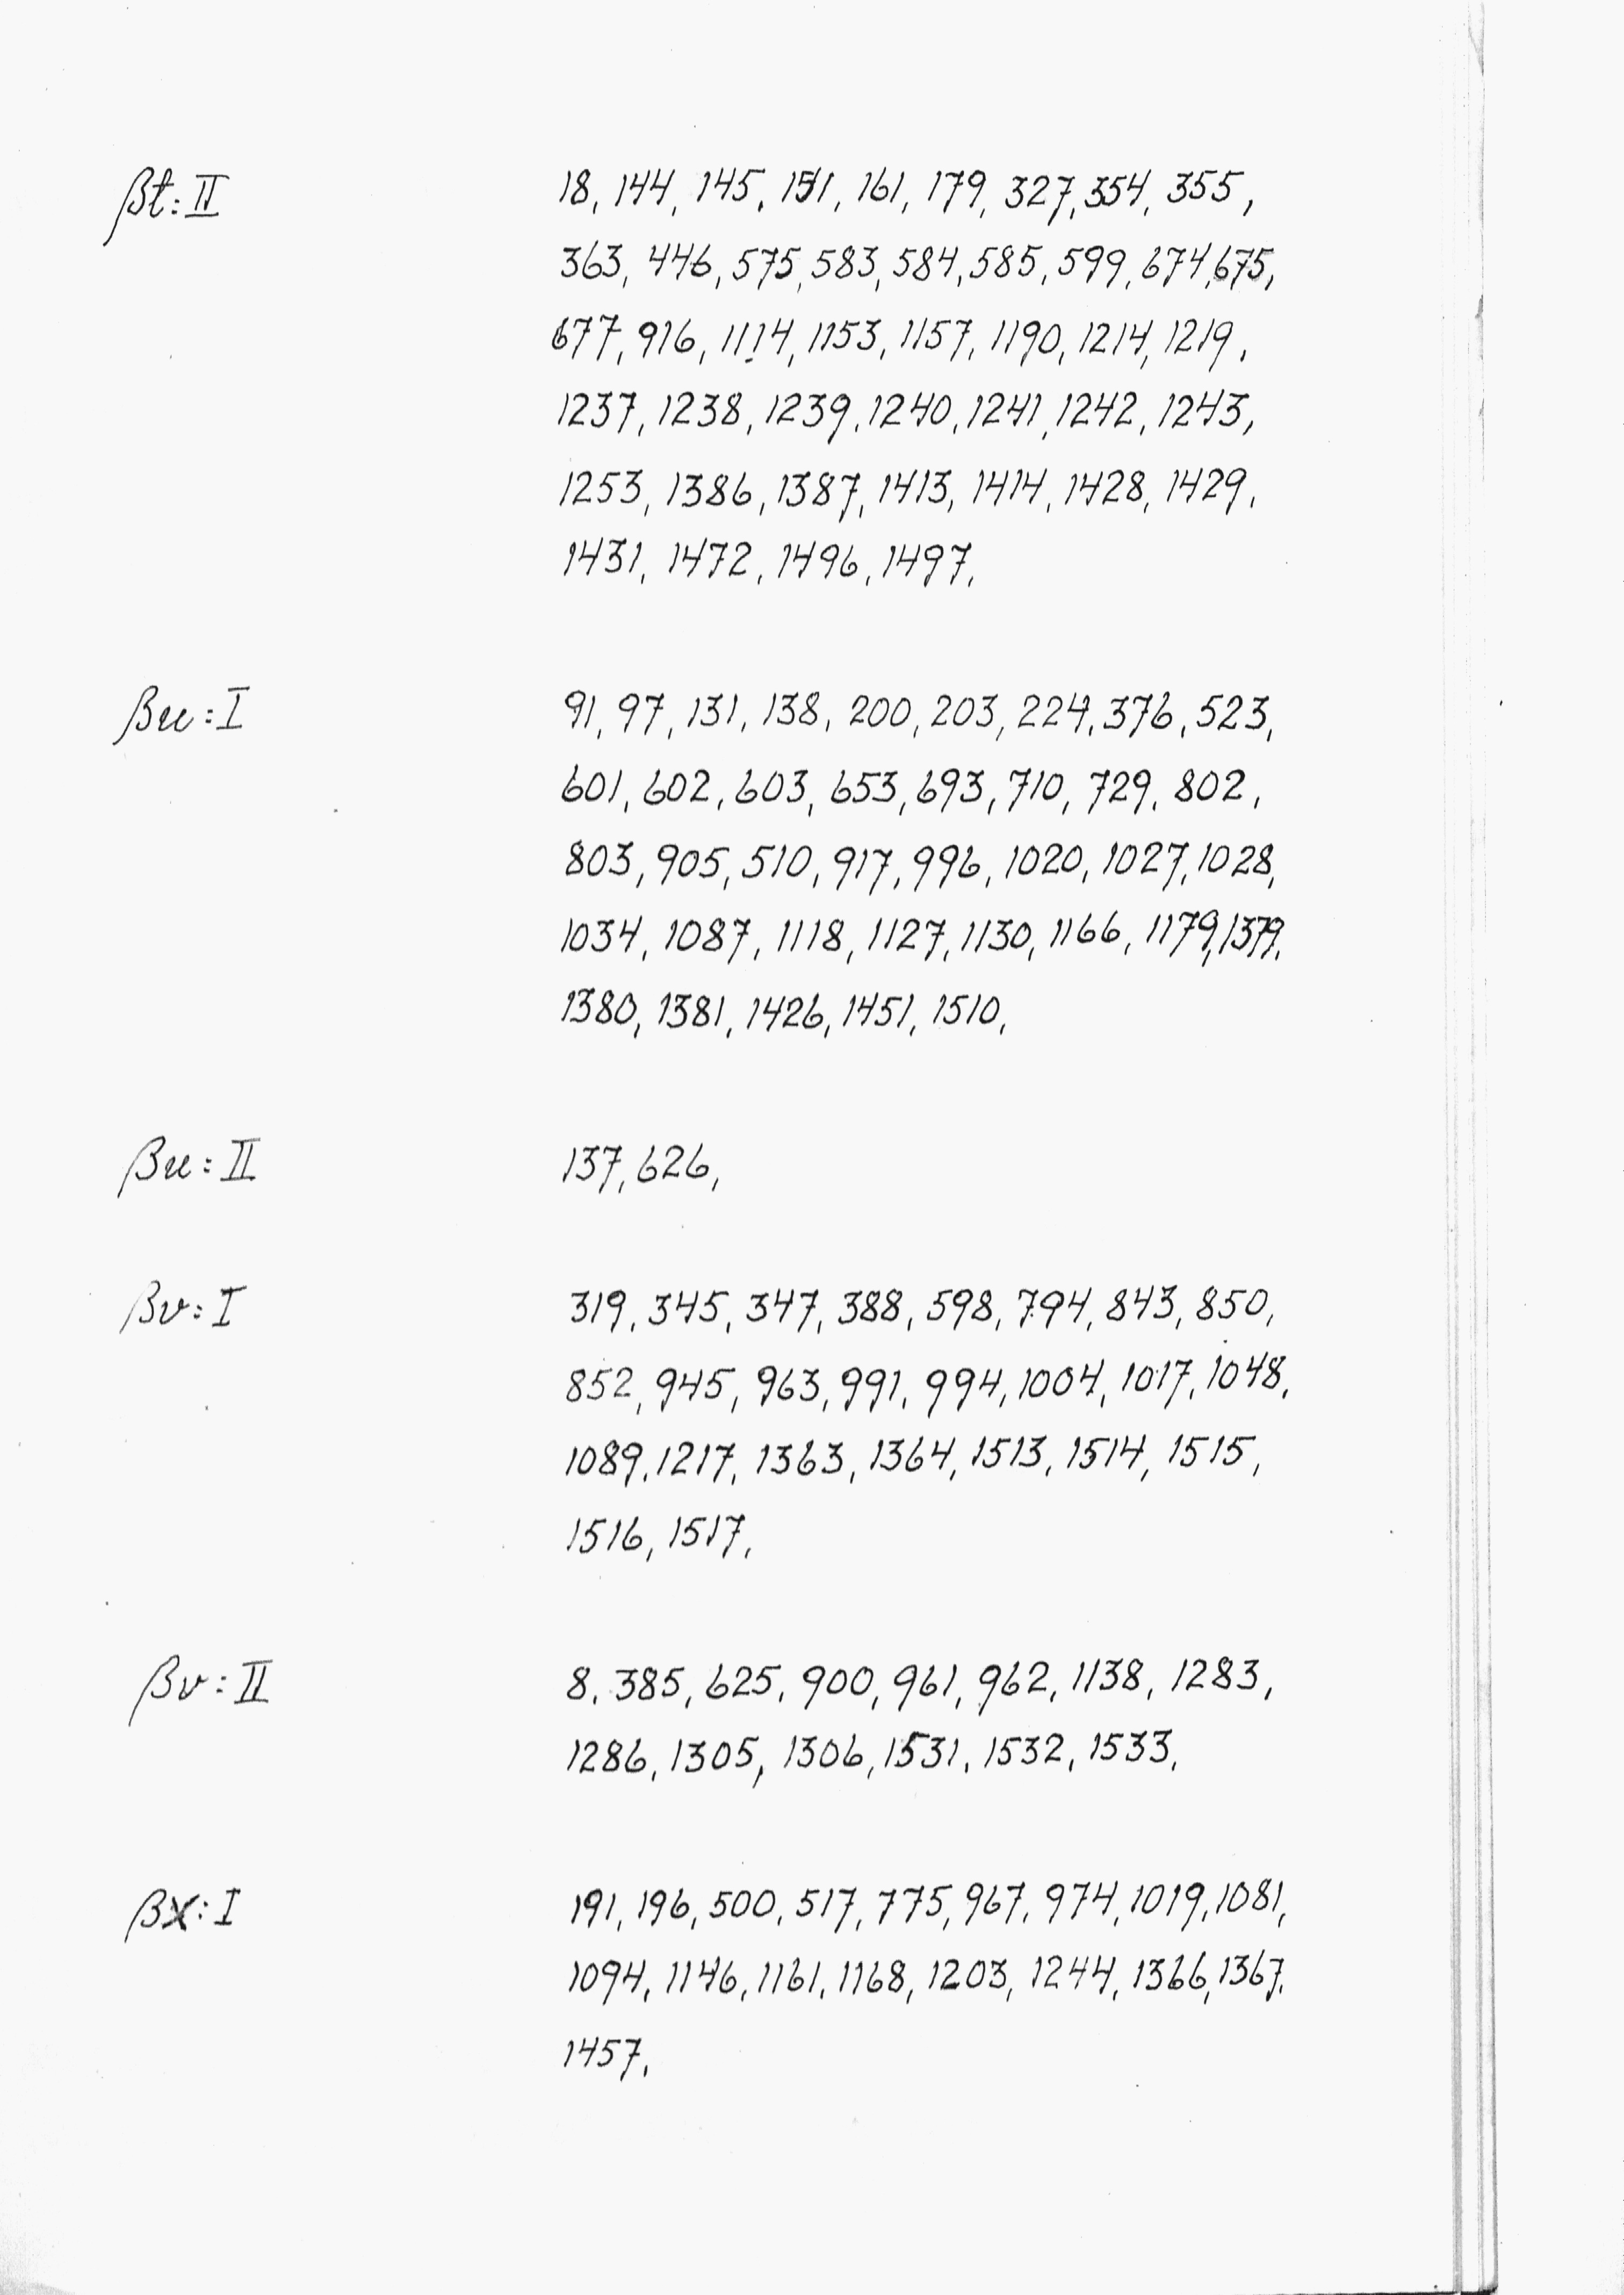 βt: II 18, 144, 145, 151, 161, 179, 327, 354, 355,
363, 446, 575, 583, 584, 585, 599, 674, 675,
677, 916, 1114, 1153, 1157, 1190, 1214, 1219,
1237, 1238, 1239, 1240, 1241, 1242, 1243,
1253, 1386, 1387, 1413, 1414, 1428, 1429,
1431, 1472, 1496, 1497,
βu: I 91, 97, 131, 138, 200, 203, 224, 376, 523,
601, 602, 603, 653, 693, 710, 729, 802,
803, 905, 510, 917, 996, 1020, 1027, 1028,
1034, 1087, 1118, 1127, 1130, 1166, 1179, 1379,
1380, 1381, 1426, 1451, 1510,
βu: II 137, 626,
βv: I 319, 345, 347, 388, 598, 794, 843, 850,
852, 945, 963, 991, 994, 1004, 1017, 1048,
1089, 1217, 1363, 1364, 1513, 1514, 1515,
1516, 1517,
βv: II 8, 385, 625, 900, 961, 962, 1138, 1283,
1286, 1305, 1306, 1531, 1532, 1533,
βx: I 191, 196, 500, 517, 775, 967, 974, 1019, 1081,
1094, 1146, 1161, 1168, 1203, 1244, 1366, 1367,
1457,